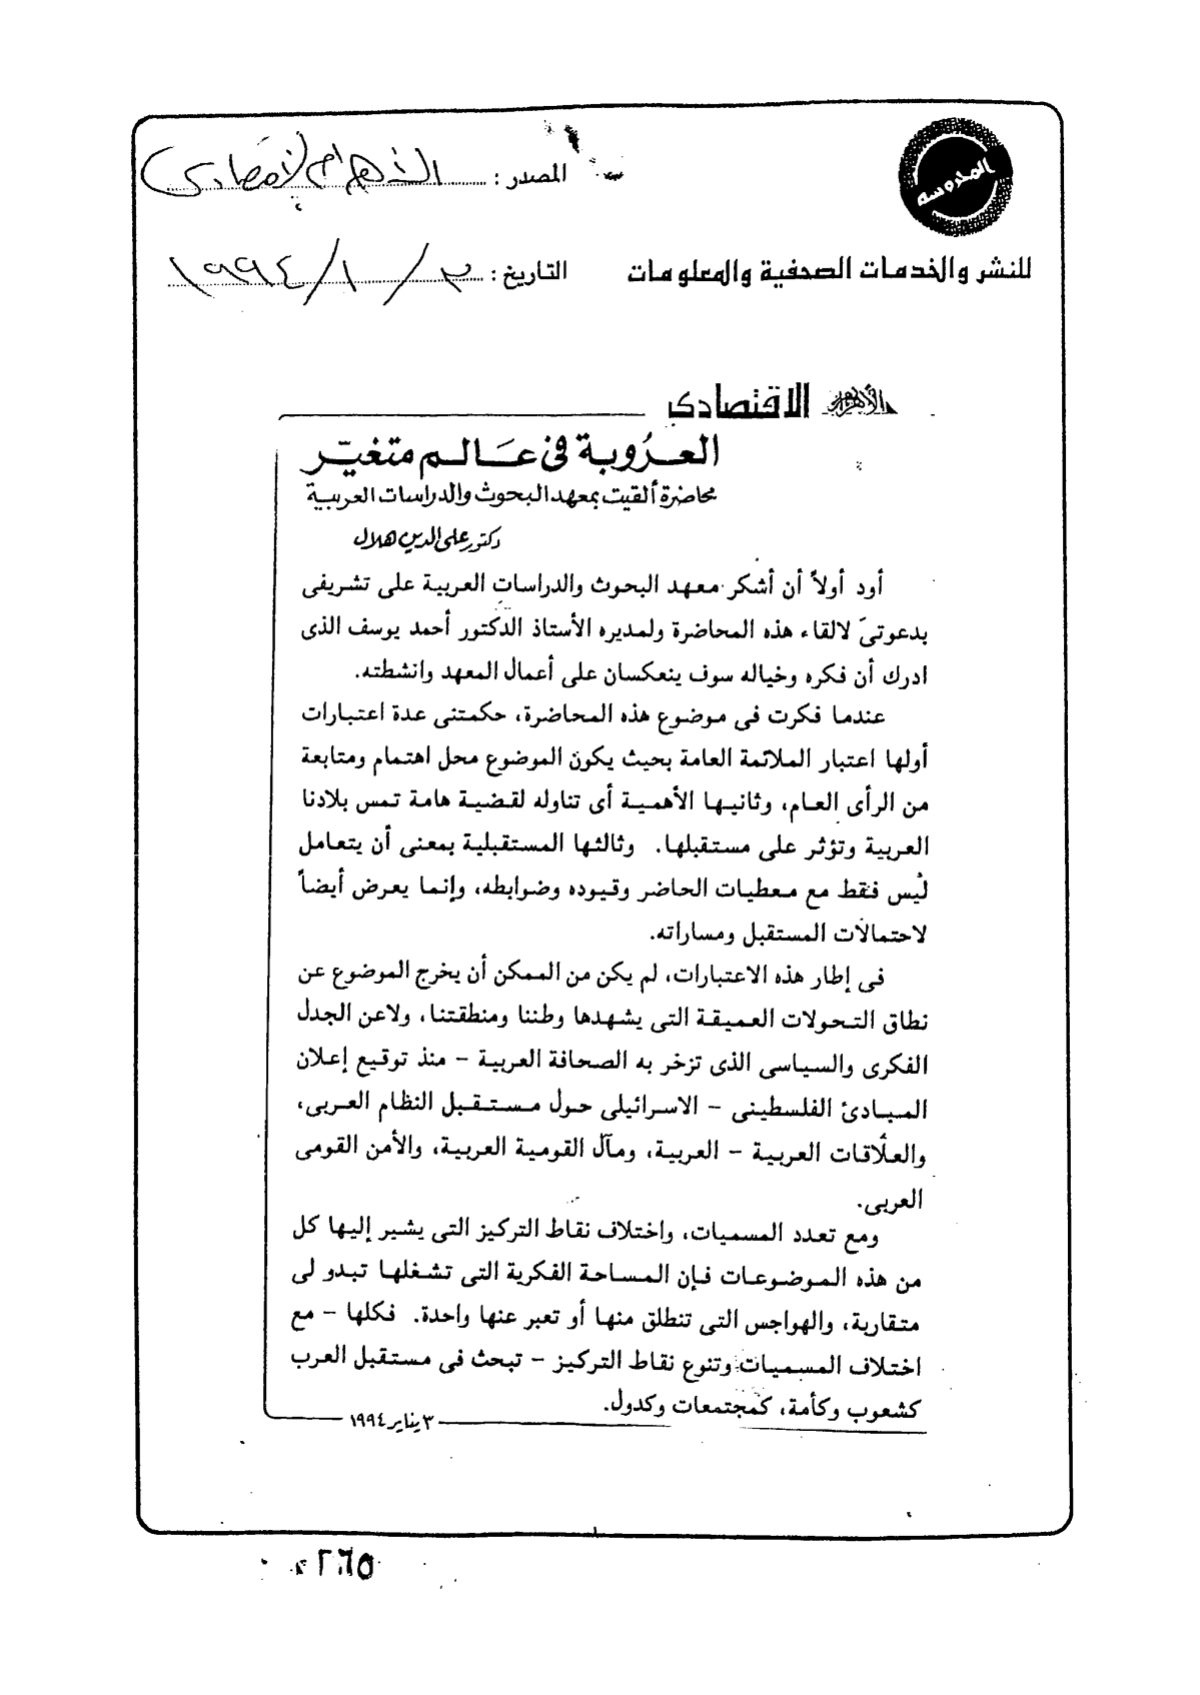 المحروسة
المصدر : الأهرام الاقتصادى
للنشر والخدمات الصحفية والمعلومات
التاريخ : ٣ / ١ / ١٩٩٤
الأهرام الاقتصادى
العروبة فى عالم متغير
محاضرة ألقيت بمعهد البحوث والدراسات العربية
دكتور على الدين هلال
أود أولاً أن أشكر معهد البحوث والدراسات العربية على تشريفى
بدعوتى لالقاء هذه المحاضرة ولمديره الأستاذ الدكتور أحمد يوسف الذى
ادرك أن فكره وخياله سوف ينعكسان على أعمال المعهد وانشطته.
عندما فكرت فى موضوع هذه المحاضرة، حكمتنى عدة اعتبارات
أولها اعتبار الملائمة العامة بحيث يكون الموضوع محل اهتمام ومتابعة
من الرأى العام، وثانيها الأهمية أى تناوله لقضية هامة تمس بلادنا
العربية وتؤثر على مستقبلها. وثالثها المستقبلية بمعنى أن يتعامل
ليس فقط مع معطيات الحاضر وقيوده وضوابطه، وإنما يعرض أيضاً
لاحتمالات المستقبل ومساراته.
فى إطار هذه الاعتبارات، لم يكن من الممكن أن يخرج الموضوع عن
نطاق التحولات العميقة التى يشهدها وطننا ومنطقتنا، ولاعن الجدل
الفكرى والسياسى الذى تزخر به الصحافة العربية - منذ توقيع إعلان
المبادئ الفلسطينى - الاسرائيلى حول مستقبل النظام العربى،
والعلاقات العربية - العربية، ومآل القومية العربية، والأمن القومى
العربى.
ومع تعدد المسميات، واختلاف نقاط التركيز التى يشير إليها كل
من هذه الموضوعات فإن المساحة الفكرية التى تشغلها تبدو لى
متقاربة، والهواجس التى تنطلق منها أو تعبر عنها واحدة. فكلها - مع
اختلاف المسميات وتنوع نقاط التركيز - تبحث فى مستقبل العرب
كشعوب وكأمة، كمجتمعات وكدول.
٣ يناير ١٩٩٤
٢٦٥